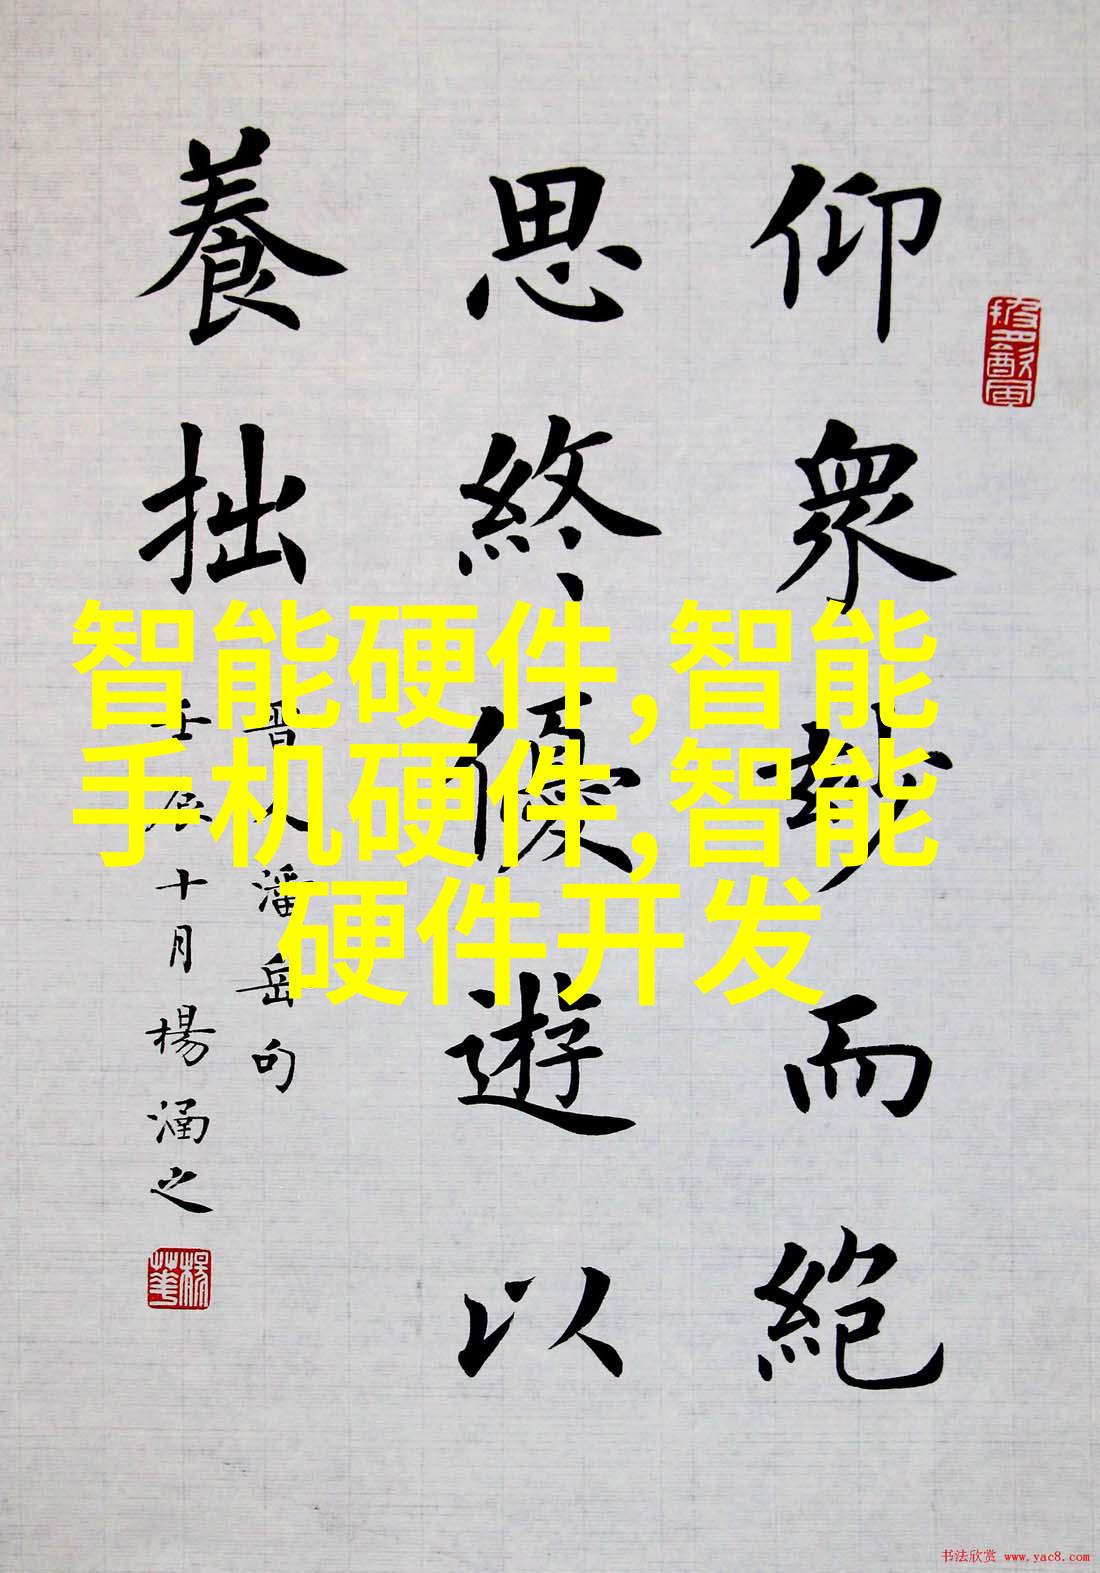 仰衆妙而絶
思終優遊以
養拙
晋人潘岳句
壬辰十月楊涵之
智能硬件,智能
手机硬件,智能
硬件开发
书法欣赏 www.yac8.com